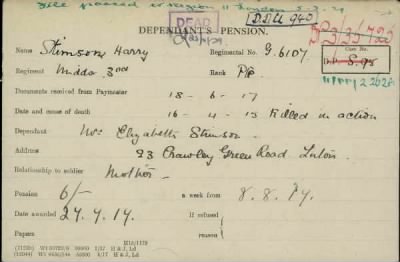 File passed to Region 11 London 5.3.29
DEAD
D.D.U 940
DEPENDANT'S PENSION.
Name Stimson Harry Regimental No. G.6107.
Case No.
Regiment Middx 3rd Rank Pte
D.P. S.95
Documents received from Paymaster 18-6-17
Date and cause of death 16-4-13 Killed in action
Dependant Mrs Elizabeth Stimson.
Address 93 Crawley Green Road Luton.
Relationship to soldier Mother.
Pension 6/- a week from 8.8.17.
Date awarded 27.7.17. If refused
REASON
Papers